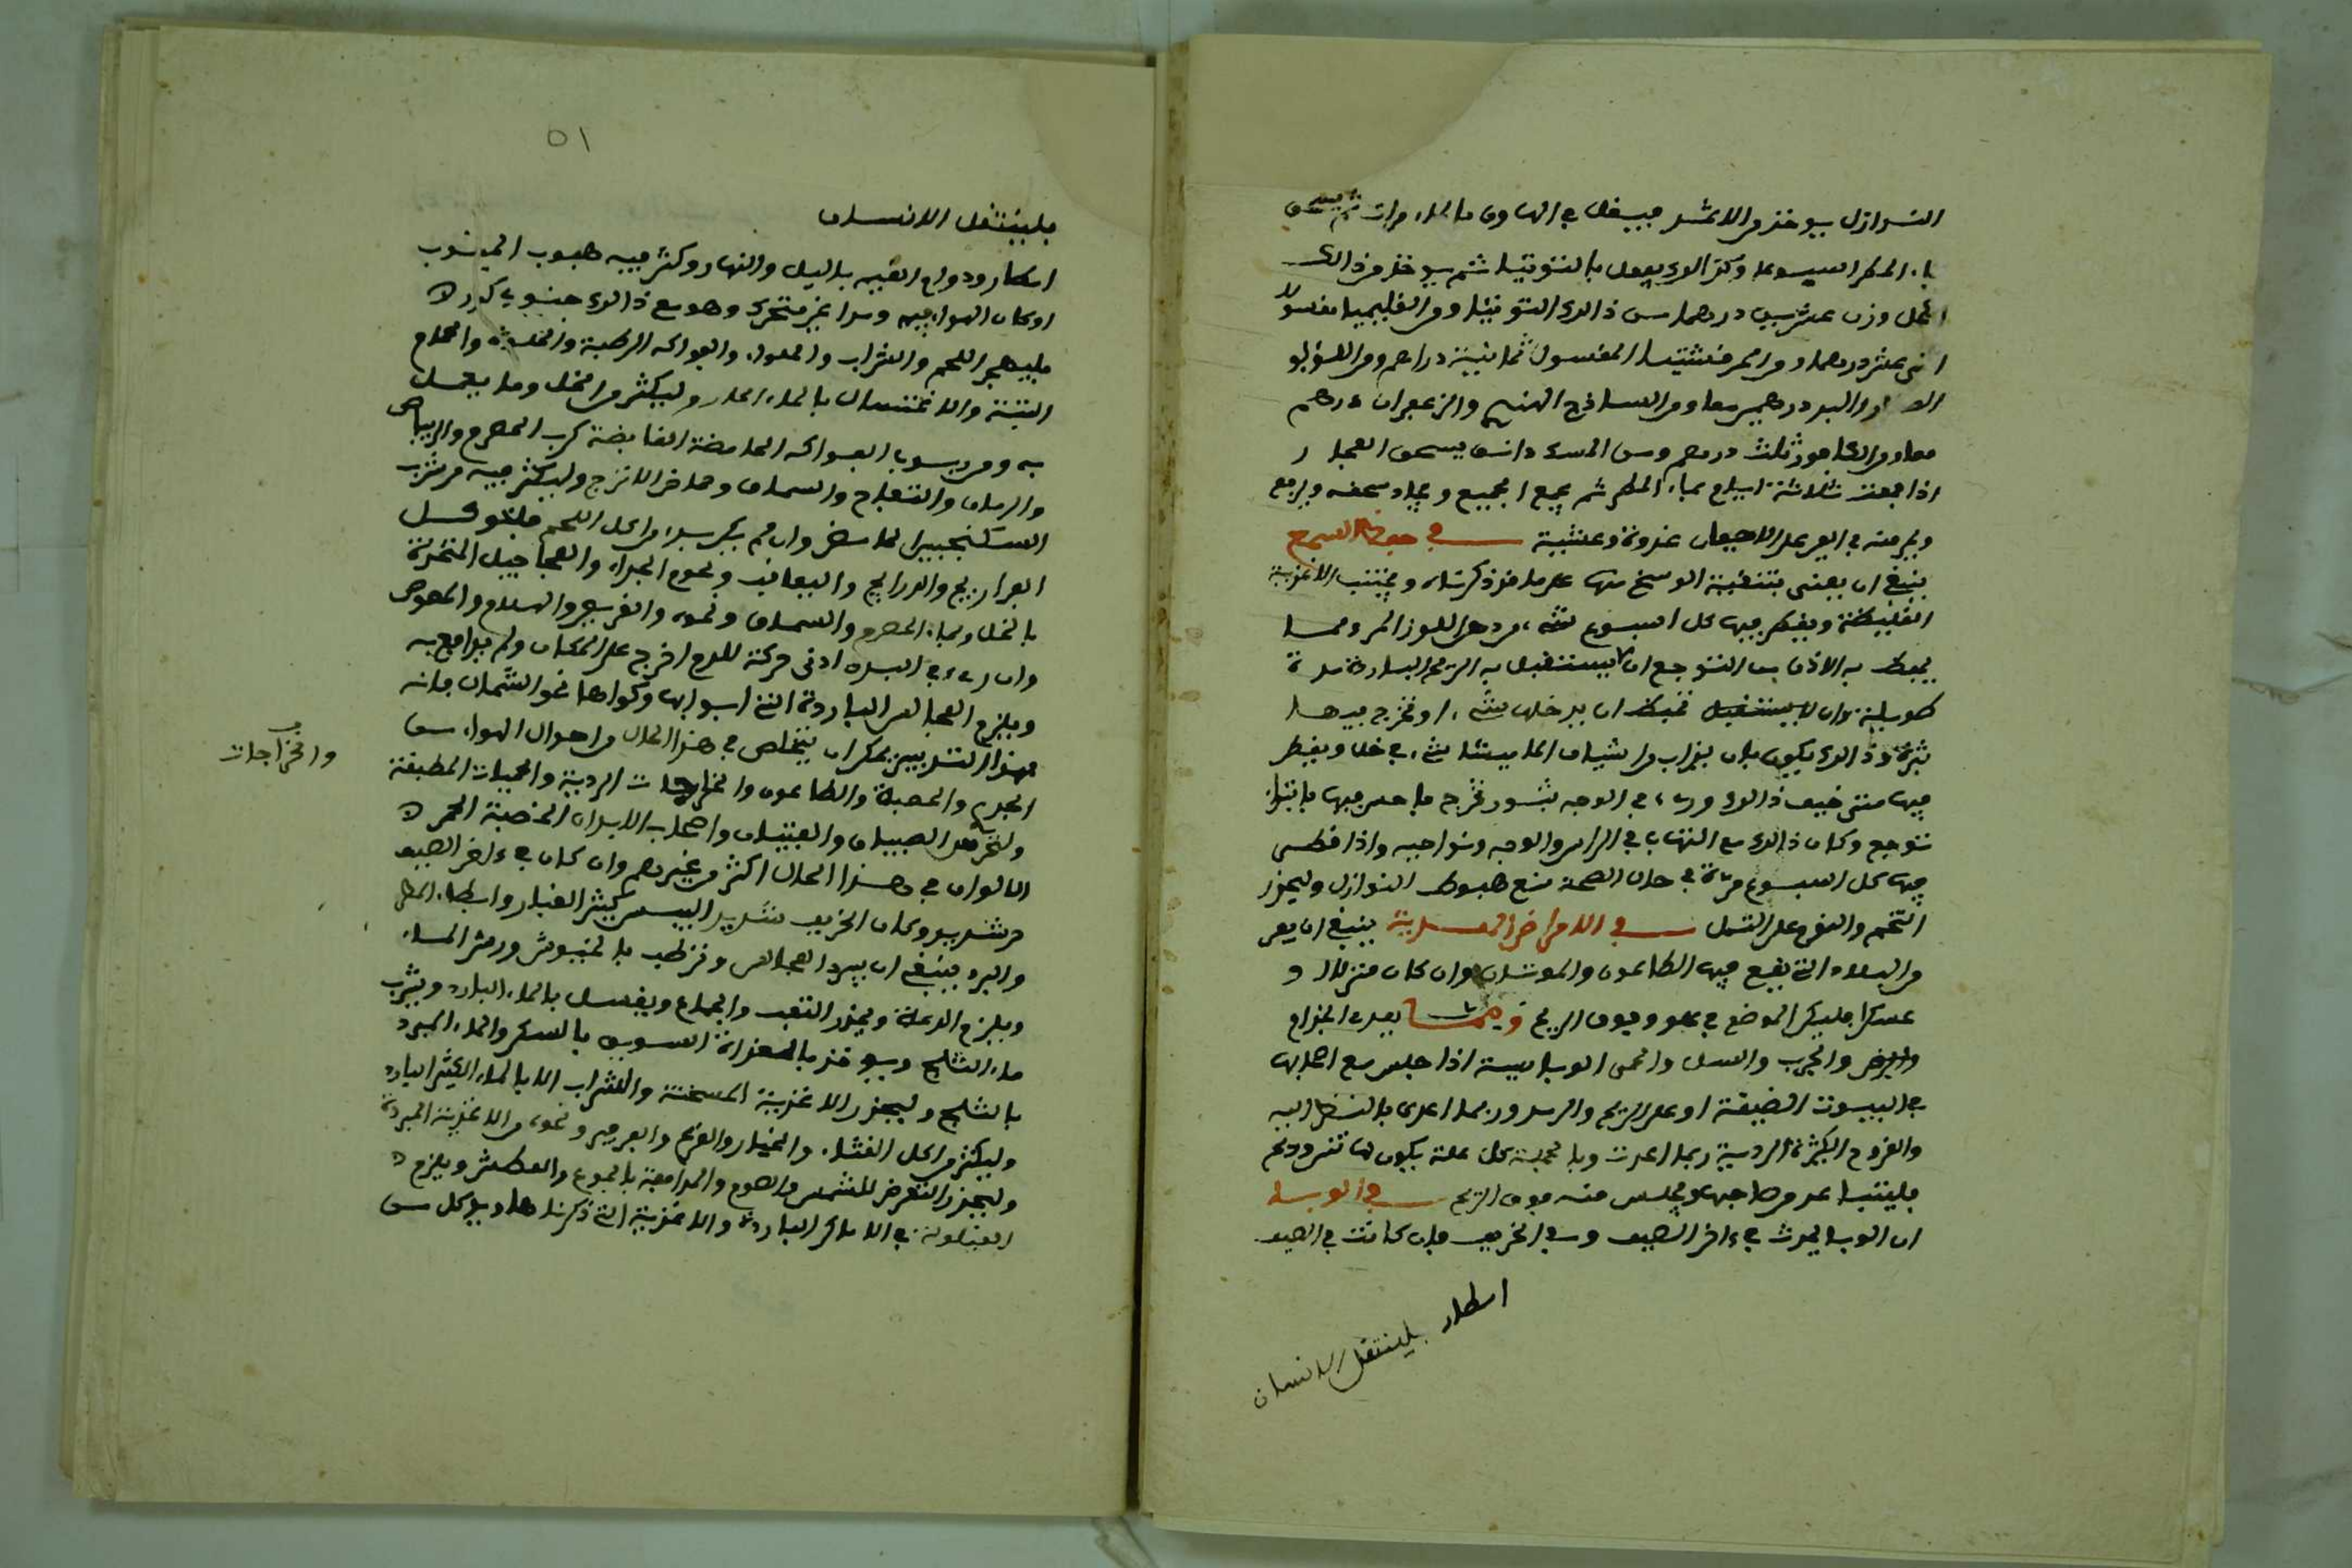 النوازل يوخذ من الاثمد فيسقى في الهاون بالماء مرات ثم يسحق
بماء المطر اسبوعا وكذالك يفعل بالتوتيا ثم يوخذ من ذالك
الكحل وزن عشرين درهما ومن ذالك التوتيا ومن القليميا مغسولا
اثني عشر درهما ومن المرقشيتا المغسول ثمانية دراهم ومن اللؤلؤ
والبسد درهمين معا ومن الساذج الهندي والزعفران درهم
معا ومن الكافور ثلث درهم ومن المسك دانق يسحق
اذا جمعت ثلاثة ايام بماء المطر ثم يجمع الجميع ويجاد سحقه ويرفع
ويمر منه في العين على الاجفان غدوة وعشية في حفظ السمع
ينبغي ان يعنى بتنقية الوسخ منها على ما قد ذكرناه ويجتنب الاغذية
الغليظة ويقطر فيها كل اسبوع شيء من دهن اللوز المر ومما
يحفظ به الاذن من التوجع ان لا يستقبل به الريح الباردة مدة
طويلة وان لا يستقبل فيحفظ ان يدخلها شيء او تخرج فيها
بثرة وذالك يكون بان يذاب من اشياف الماميثا شيء في خل ويقطر
فيها متى خيف ذالك وراء في الوجه بثور تخرج فاحس فيها بابتداء
توجع وكان ذالك مع التهاب في الراس والوجه ونواحيه واذا قطر
فيها كل اسبوع مرة في حال الصحة منع هبوط النوازل وليحذر
التخم والنوم على التملي في الامراض المعدية ينبغي ان يفر
من البلاد التي يقع فيها الطاعون والموتان وان كان منزلا او
عسكرا فليكن الموضع في علو وفوق الريح ومما يعدي الجذام
والبرص والجرب والسل والحمى الوبايية اذا جلس مع اصحابها
في البيوت الضيقة او على الريح والرمد وربما اعدى بالنظر اليه
والقروح الكثيرة الردية ربما اعدت وبالجملة كل علة يكون لها نتن وريح
فليتباعد من صاحبها ويجلس منه فوق الريح في الوباء
ان الوباء يحدث في ءاخر الصيف وفي الخريف فان كانت في الصيف
امطار فلينتقل الانسان
٥١
فلينتقل الانسان
امطار ودوام الغيم بالليل والنهار وكثر فيه هبوب الجنوب
او كان الهواء فيه ومدا غير متحرك وهو مع ذالك جنوبي كدر
فليهجر اللحم والشراب والحلواء والفواكه الرطبة والحمام
البتة والاغتسال بالماء الحار وليكثر من الخل وما يعمل
به ومن ربوب الفواكه الحامضة القابضة كرب الحصرم والريباس
والرمان والتفاح والسماق وحماض الاترج وليكثر فيه من شرب
السكنجبين الحامض وان لم يكن بدا من اكل اللحم فليوكل
الفراريج والدراريج والبعاقيب ولحوم الجداء والعجاجيل المتخذة
بالخل وبماء الحصرم والسماق ونحوه والقريص والهلام والمصوص
وان رءي في البدن ادنى حركة للدم اخرج على المكان ولم يدافع به
ويلزم المجالس الباردة التي ابوابها وكواها نحو الشمال فانه
بهذا التدبير يمكن ان يتخلص في هذا الحال من احوال الهواء من
الجدري والحصبة والطاعون والخراجات الردية والحميات المطبقة
والخراجات
ولتحرص الصبيان والفتيان واصحاب الابدان الخصبة الحمر
الالوان في هذا الحال اكثر من غيرهم وان كان في ءاخر الصيف
حر شديد وكان الخريف شديد اليبس كثير الغبار وابطاء المطر
والبرد فينبغي ان يبرد المجالس وترطب بالخيوش ورش الماء
ويلزم الدعة ويحذر التعب والجماع ويغتسل بالماء البارد ويشرب
ماء الثلج ويوخذ بالغداة السويق بالسكر والماء المبرد
بالثلج وليحذر الاغذية المسخنة والشراب الا بالماء الكثير البارد
وليكثر من اكل القثاء والخيار والقرع والفرفير ونحوه من الاغذية المبردة
وليحذر التعرض للشمس والصوم والمدافعة بالجوع والعطش ويلزم
القيلولة في الاماكن الباردة والاغذية التي ذكرناها وياكل من